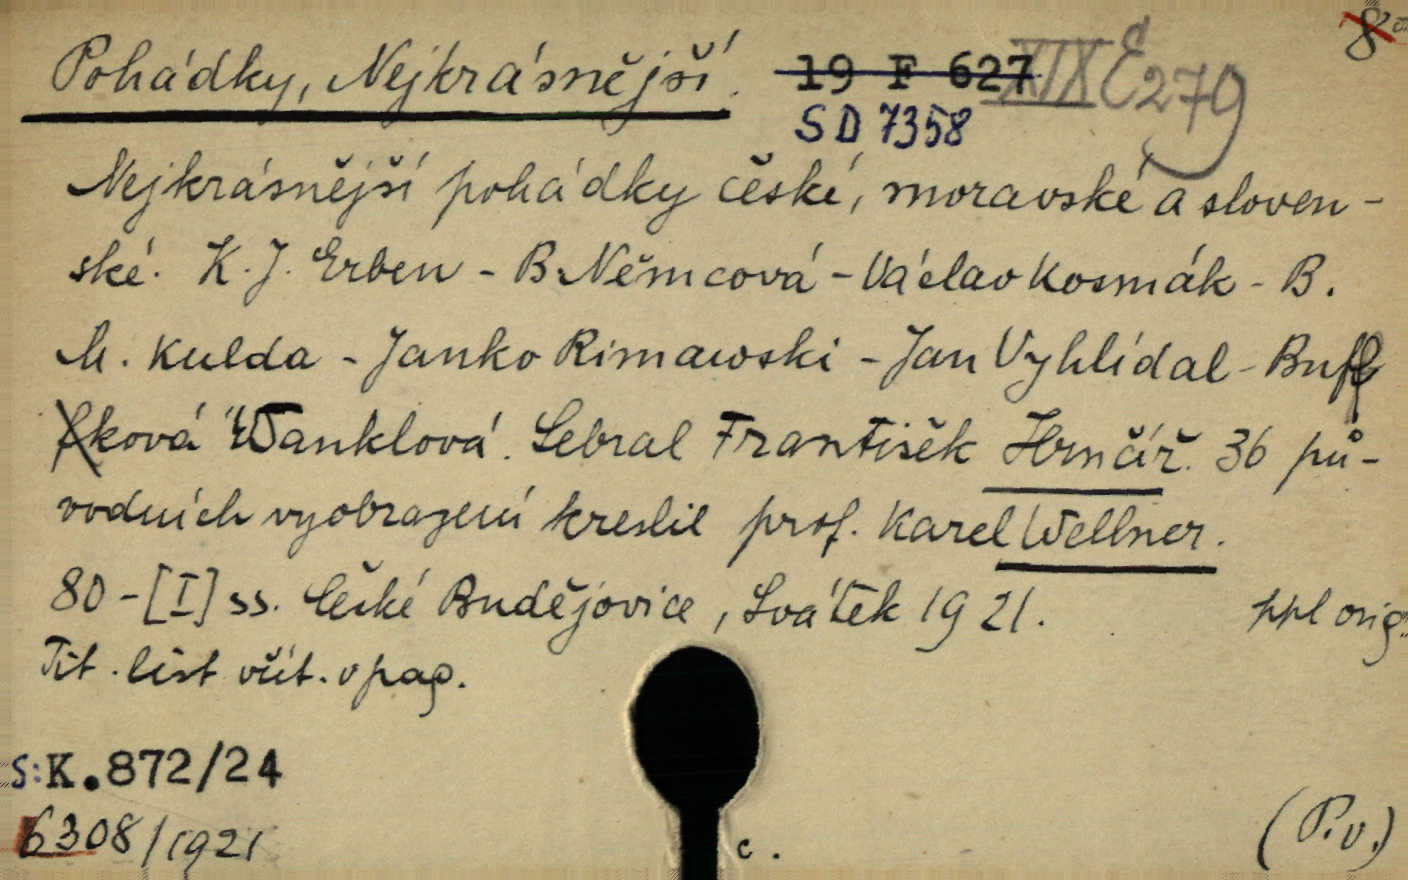 8°
Pohádky, Nejkrásnější.
19 F 627 XIX E 279
SD 7358
Nejkrásnější pohádky české, moravské a sloven-
ské. K. J. Erben - B. Němcová - Václav Kosmák - B.
M. Kulda - Janko Rimawski - Jan Vyhlídal - Buff
ková Wanklová. Sebral František Hrnčíř. 36 pů-
vodních vyobrazení kreslil prof. Karel Wellner.
80-[I] ss. České Budějovice, Svátek 1921. ppl orig.
Tit. list včít. v pag.
S: K.872/24
6308/1921
c.
(P.v.)